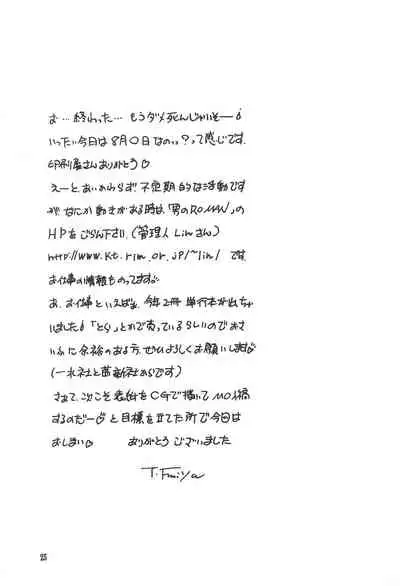 お…終わった…もうダメ死んじゃいそーーっ
いったい今日は8月0日なのっ?って感じです.
印刷屋さんありがとう♡
えーと、あいかわらず不定期的な活動です
が なにか動きがある時は、「男のROMAN」の
HPをごらん下さい.(管理人 Linさん)
http://www.kt.rim.or.jp/~lin/ です
お仕事の情報ものってますが
あ、お仕事といえば、今年2冊 単行本が出ちゃ
いました♪「とら」とかで売っているらしいので おさ
いふに余裕のある方、ぜひよろしくお願いします♡
(一水社と茜新社からです)
さぁて、次こそ表紙をCGで描いてMO入稿
するのだー♡ と目標を立てた所で今日は
おしまい♡ ありがとうございました
T.Fmiya
25